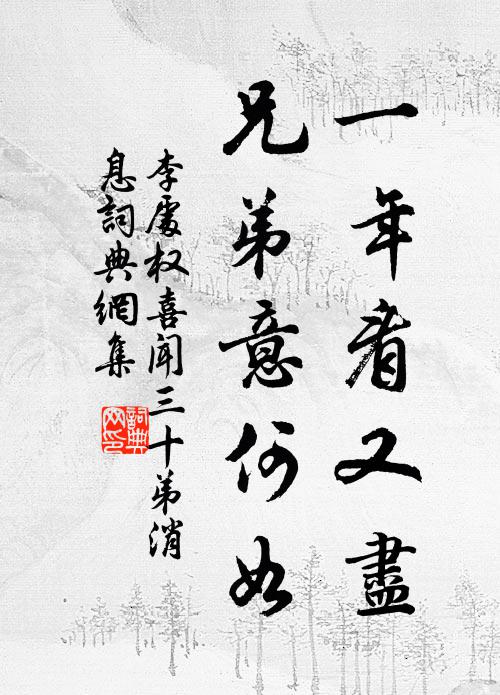 一年看又盡
兄弟意何如
李處权喜聞三十弟消
息詞典網集
詞典网印